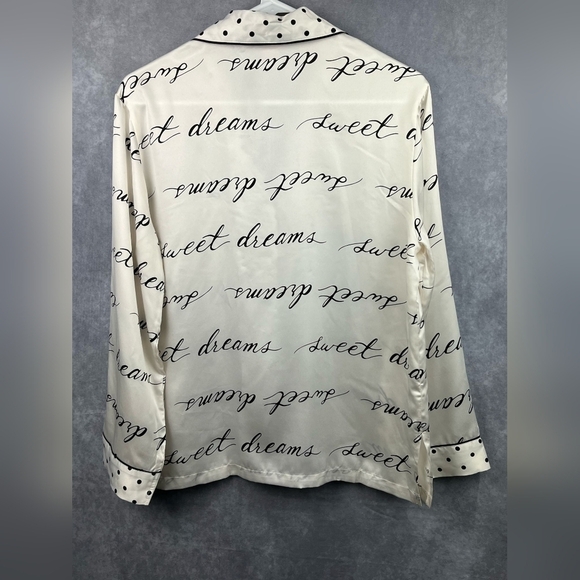 sweet dreams
sweet dreams sweet
sweet dreams
sweet dreams sweet
sweet dreams
dreams sweet dreams
sweet dreams
sweet dreams sweet
dreams
dreams